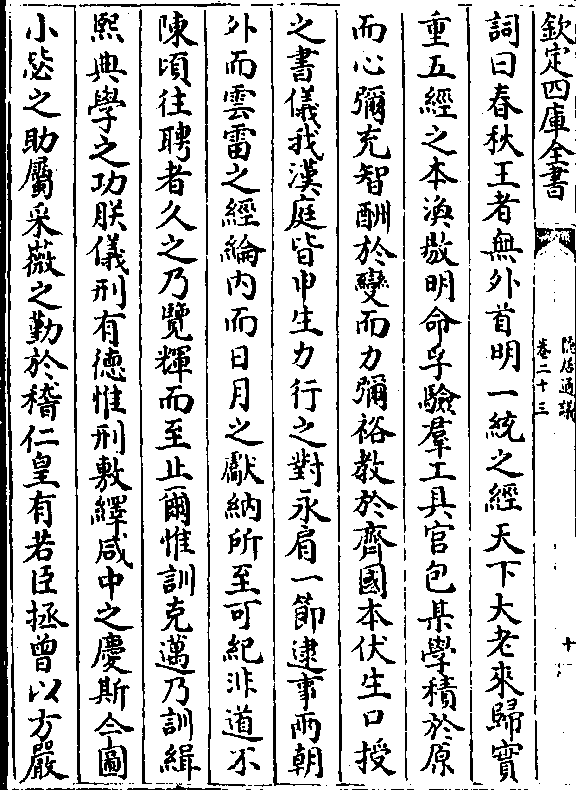 欽定四庫全書
卷二十三
十
詞曰春秋王者無外首明一統之經天下大老來歸寔
重五經之本渙敭明命孚驗羣工具官包某學積於原
而心彌充智酬於變而力彌裕教於齊國本伏生口授
之書儀我漢庭皆申生力行之對永肩一節逮事兩朝
外而雲雷之經綸内而日月之獻納所至可紀非道不
陳頃往聘者久之乃覽輝而至止爾惟訓克邁乃訓緝
熙典學之功朕儀刑有德惟刑敷繹咸中之慶斯今圖
小毖之助屬采薇之勤於稽仁皇有若臣拯曾以方嚴